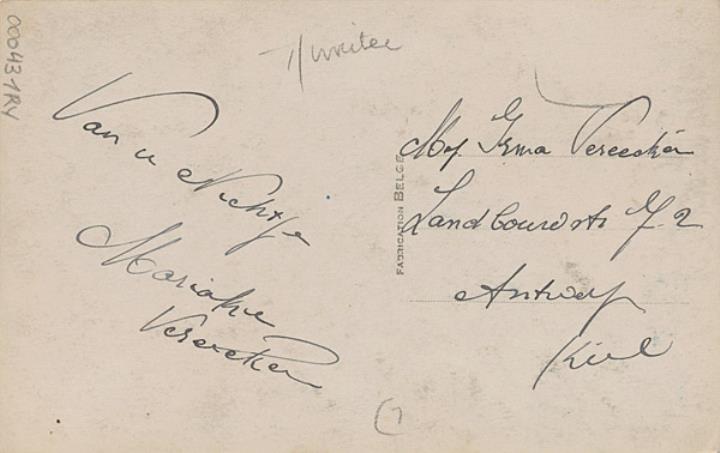 00043 1RV
Van u Nichtje
Mariake
Vereecken
FABRICATION BELGE
Mej. Irma Vereecken
Landbouwstr
Antwerp
Kiel